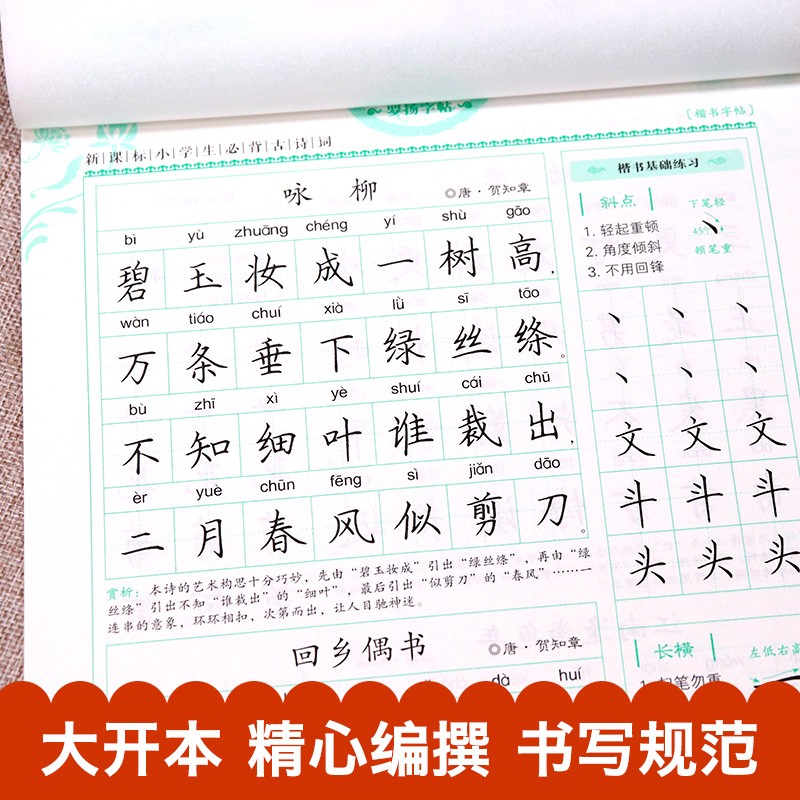 罗扬字帖
[楷书字帖]
新课标小学生必背古诗词
咏 柳
◎唐·贺知章
bì yù zhuāng chéng yí shù gāo
碧玉妆成一树高，
wàn tiáo chuí xià lǜ sī tāo
万条垂下绿丝绦。
bù zhī xì yè shuí cái chū
不知细叶谁裁出，
èr yuè chūn fēng sì jiǎn dāo
二月春风似剪刀。
赏析：本诗的艺术构思十分巧妙，先由“碧玉妆成”引出“绿丝绦”，再由“绿
丝绦”引出不知“谁裁出”的“细叶”，最后引出“似剪刀”的“春风”……一
连串的意象，环环相扣，次第而出，让人目驰神迷。
回乡偶书
◎唐·贺知章
dà huí
楷书基础练习
斜点
下笔轻
1. 轻起重顿
45°
2. 角度倾斜
顿笔重
3. 不用回锋
丶 丶 丶
丶 丶 丶
文 文 文
斗 斗 斗
头 头 头
长横
左低右高
1. 起笔勿重
大开本 精心编撰 书写规范